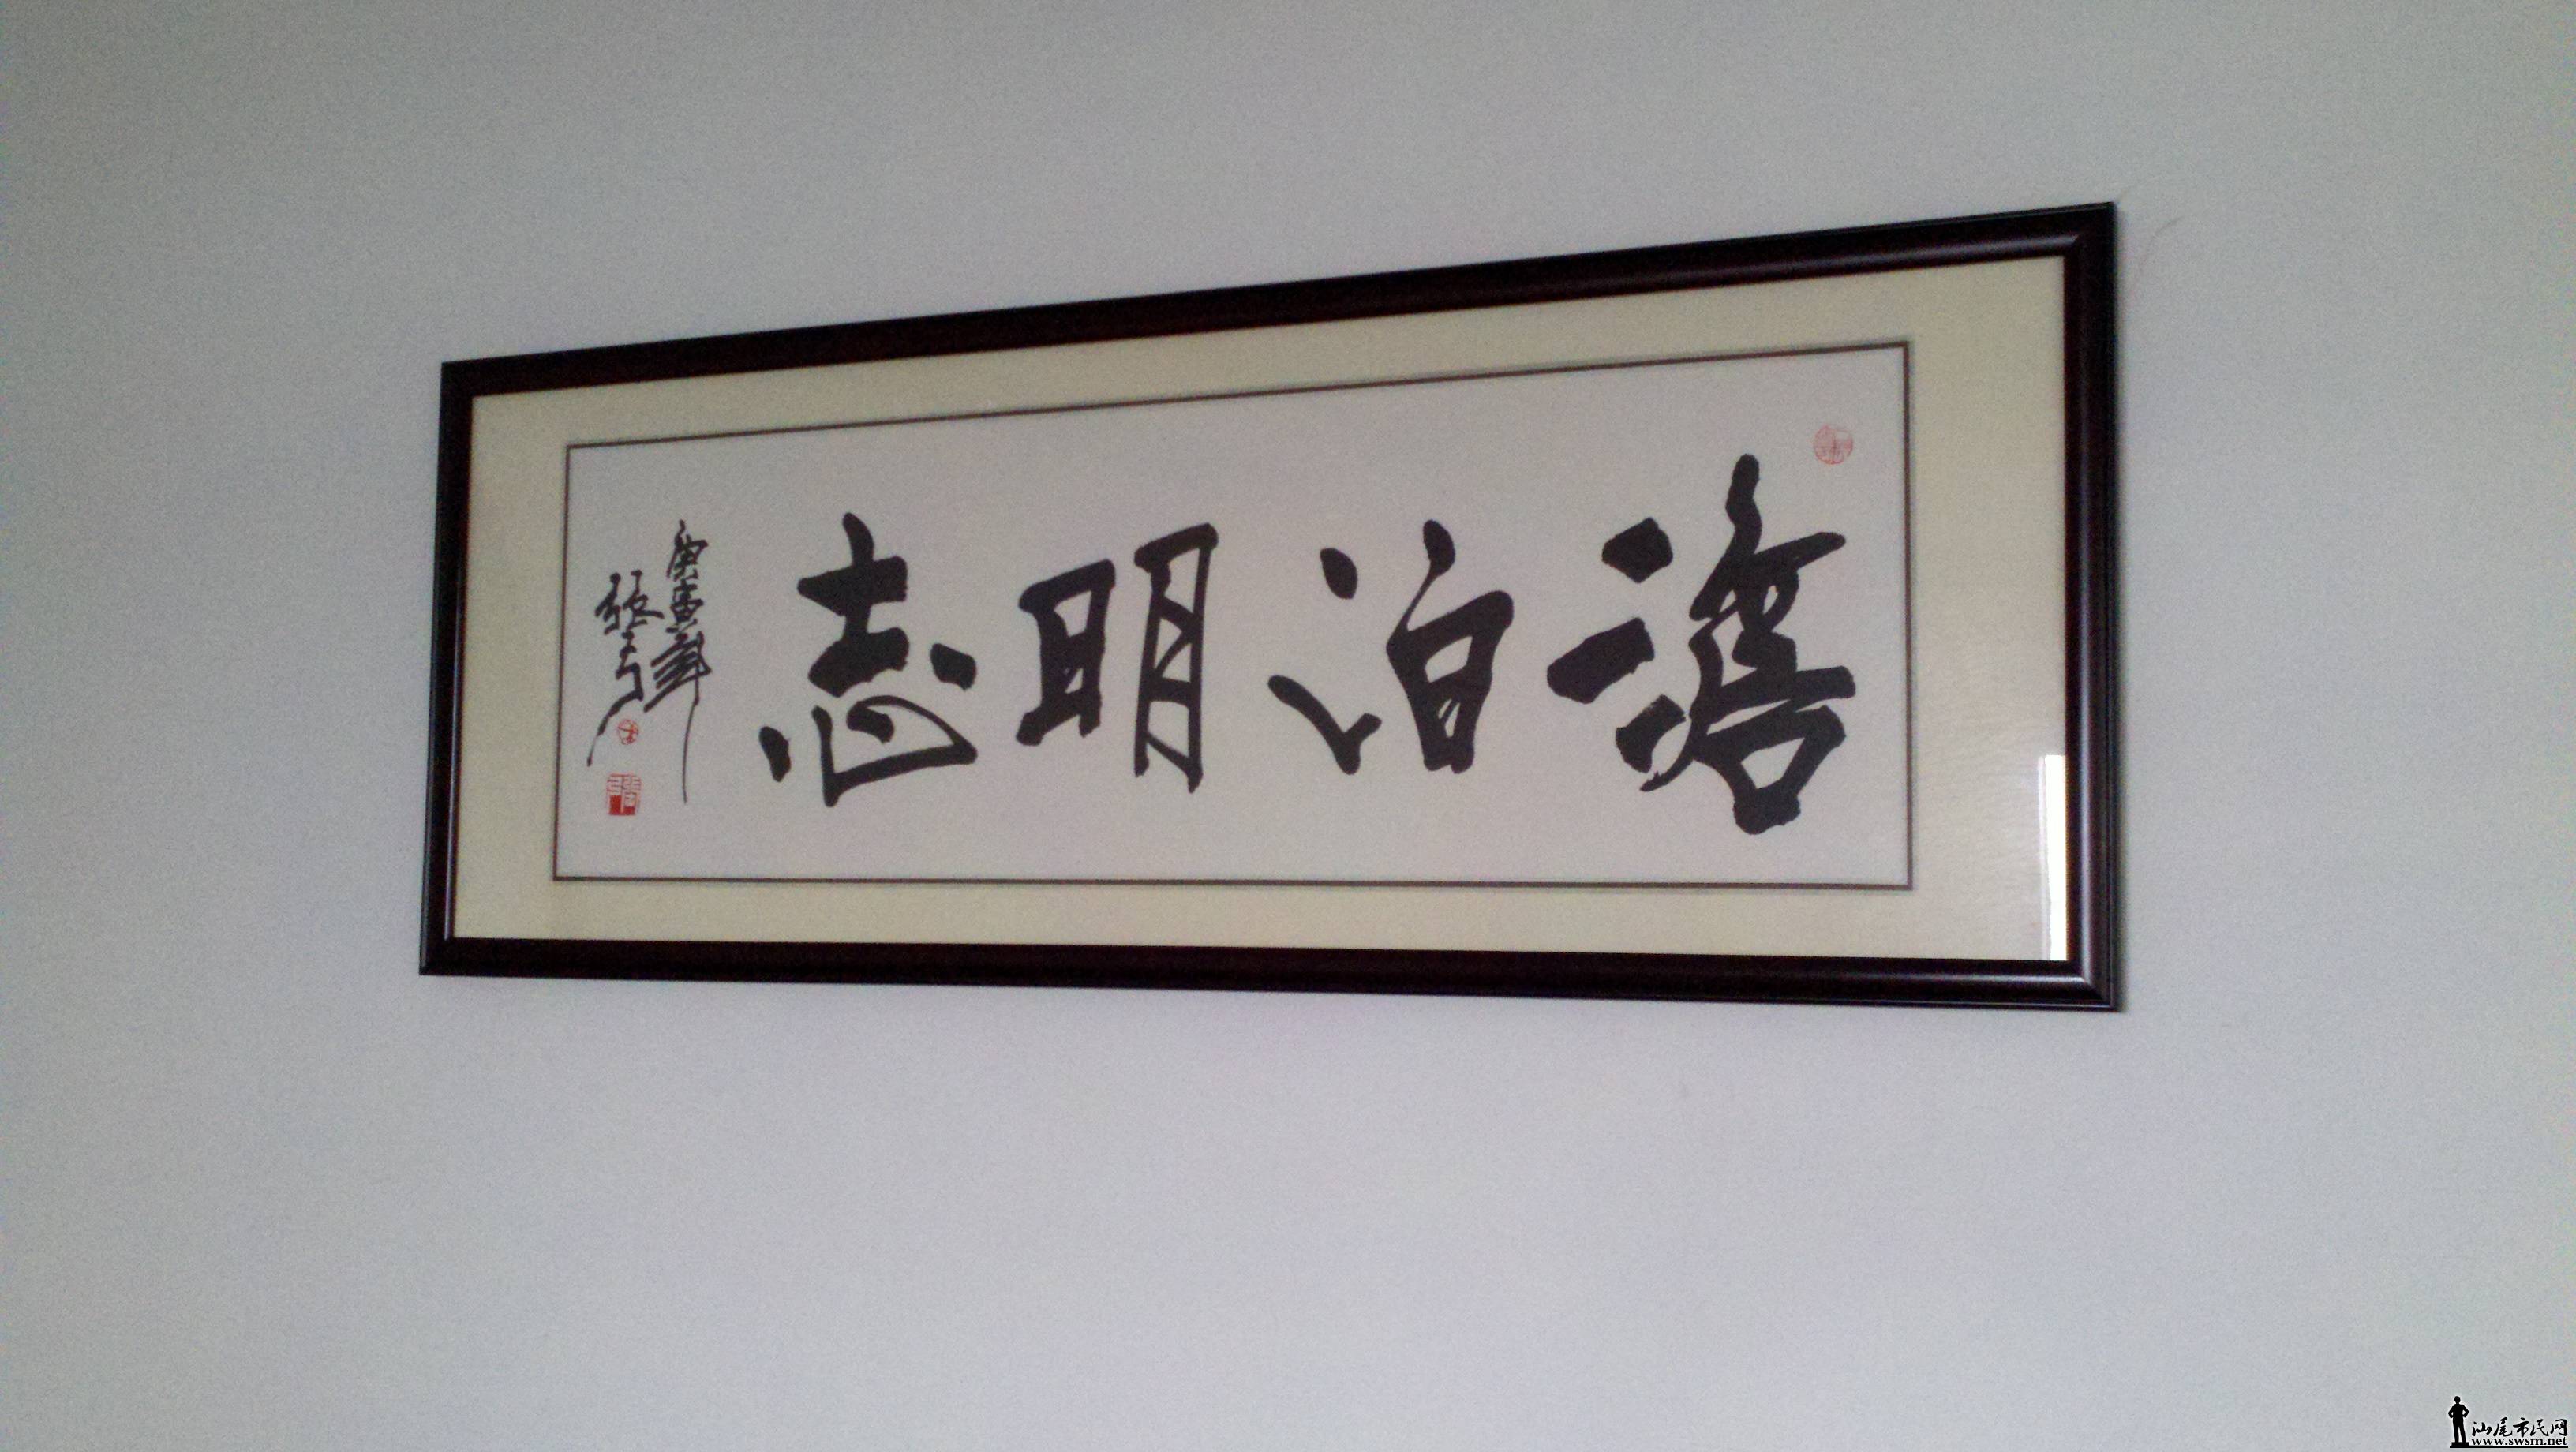 澹泊明志
庚寅年
張弓
汕尾市民网
www.swsm.net